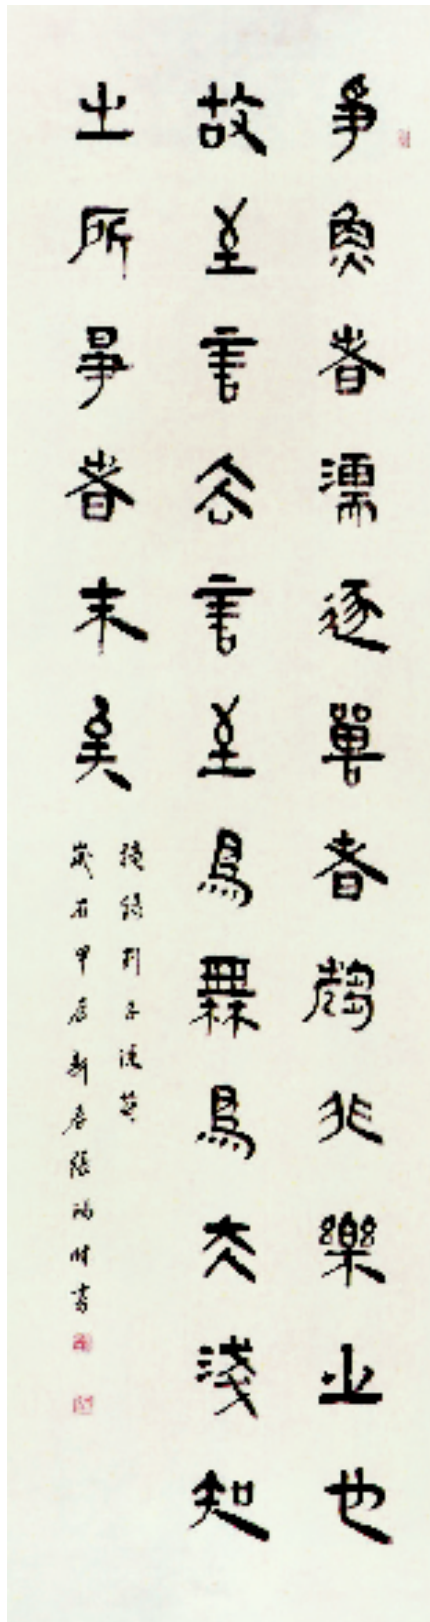 爭魚者濡逐獸者趨非樂之也
故至言去言至為無為夫淺知
之所爭者末矣
錄列子
歲在甲辰新春張時書